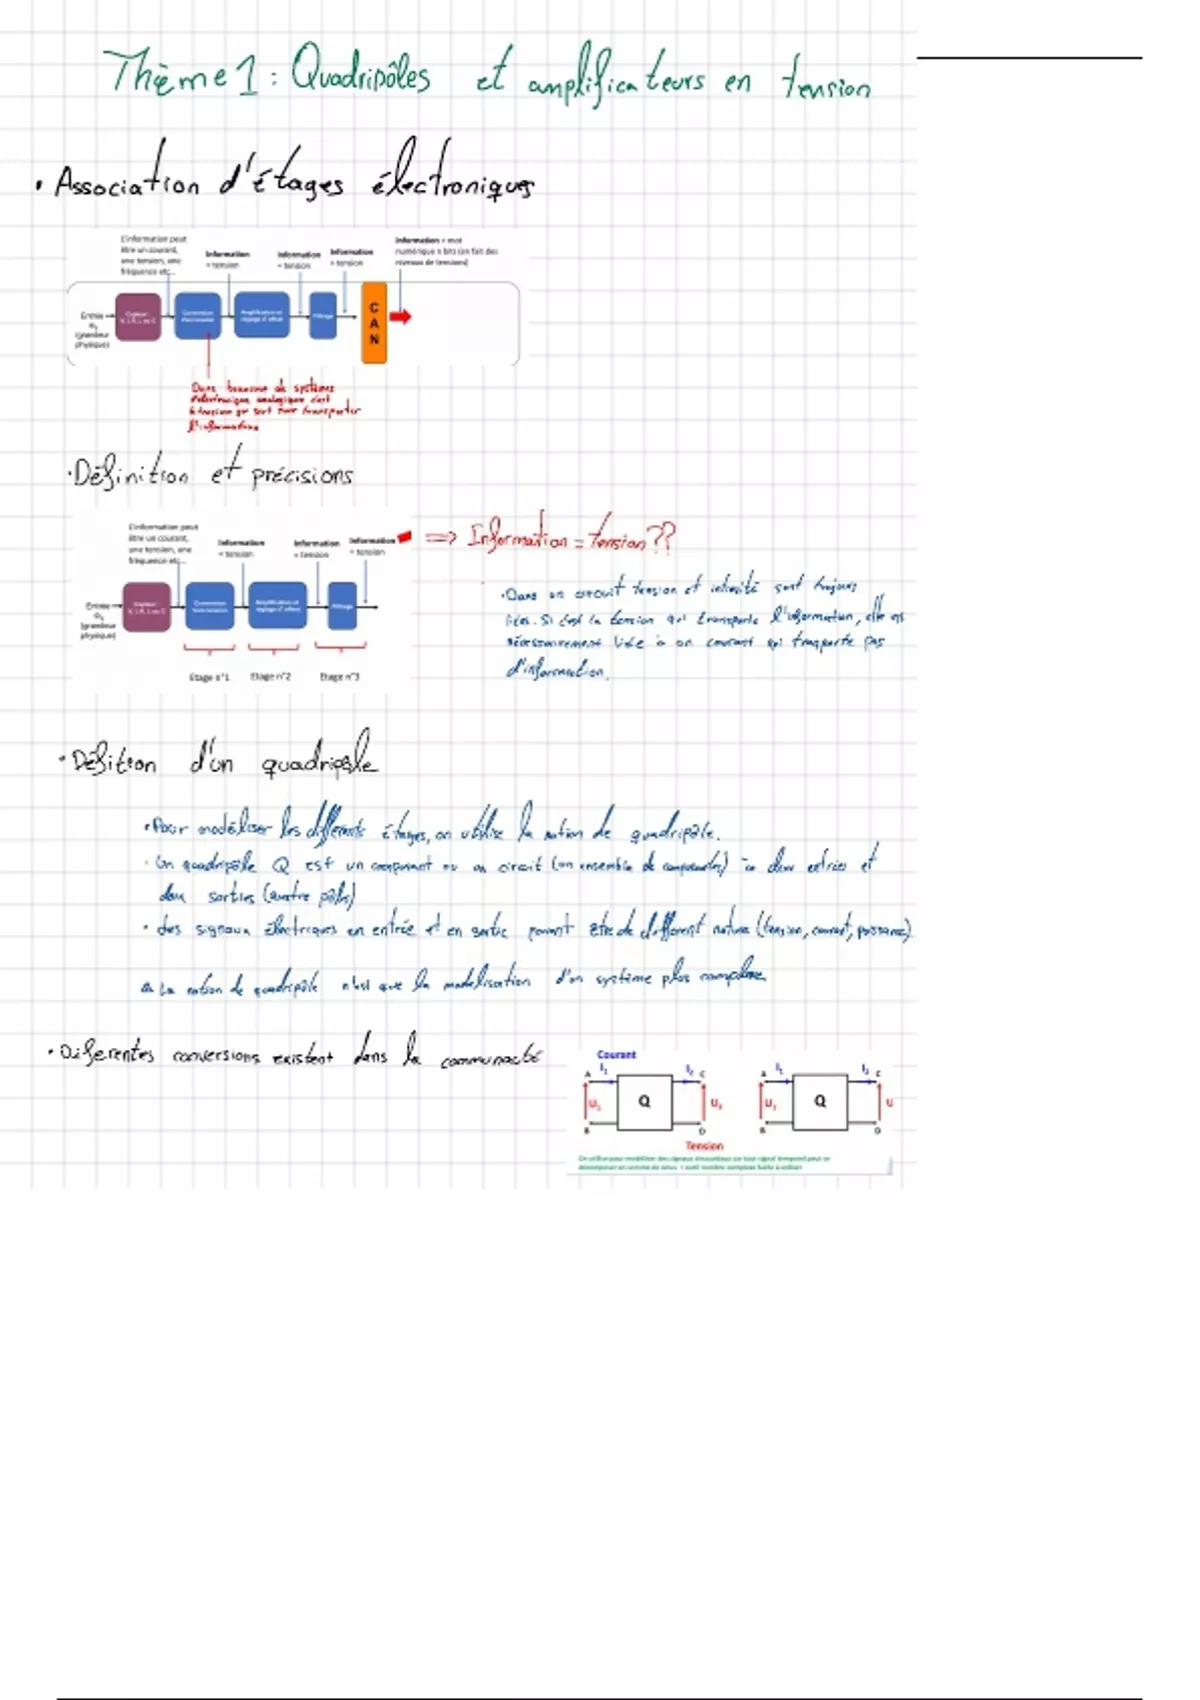 Thème 1 : Quadripôles et amplificateurs en tension
• Association d'étages électroniques
L'information peut
être un courant,
une tension, une
fréquence etc...
Information
= tension
Information
= tension
Information
= tension
Information = mot
numérique n bits (en fait des
niveaux de tensions)
Entrée
(grandeur
physique)
Capteur
Conversion
Amplification et
réglage d'offset
Filtrage
CAN
Dans beaucoup de systèmes
électronique analogique c'est
la tension qui sert pour transporter
l'information
• Définition et précisions
L'information peut
être un courant,
une tension, une
fréquence etc...
Information
= tension
Information
= tension
Information
= tension
Entrée
(grandeur
physique)
Capteur
Conversion
Amplification et
réglage d'offset
Filtrage
Etage n°1
Etage n°2
Etage n°3
=> Information = tension ??
• Dans un circuit tension et intensité sont toujours
liées. Si c'est la tension qui transporte l'information, elle est
nécessairement liée à un courant qui transporte pas
d'information.
• Défition d'un quadripôle
• Pour modéliser les différents étages, on utilise la notion de quadripôle.
• Un quadripôle Q est un composant ou un circuit (un ensemble de composants) à deux entrées et
deux sorties (quatre pôles)
• des signaux électriques en entrée et en sortie peuvent être de different nature (tension, courant, puissance)
La notion de quadripôle n'est que la modélisation d'un système plus complexe
• Diferentes conversions existent dans la communauté
Courant
A I1 I2 C
U1 Q U2
B D
Tension
A I1 I2 C
U1 Q U
B D